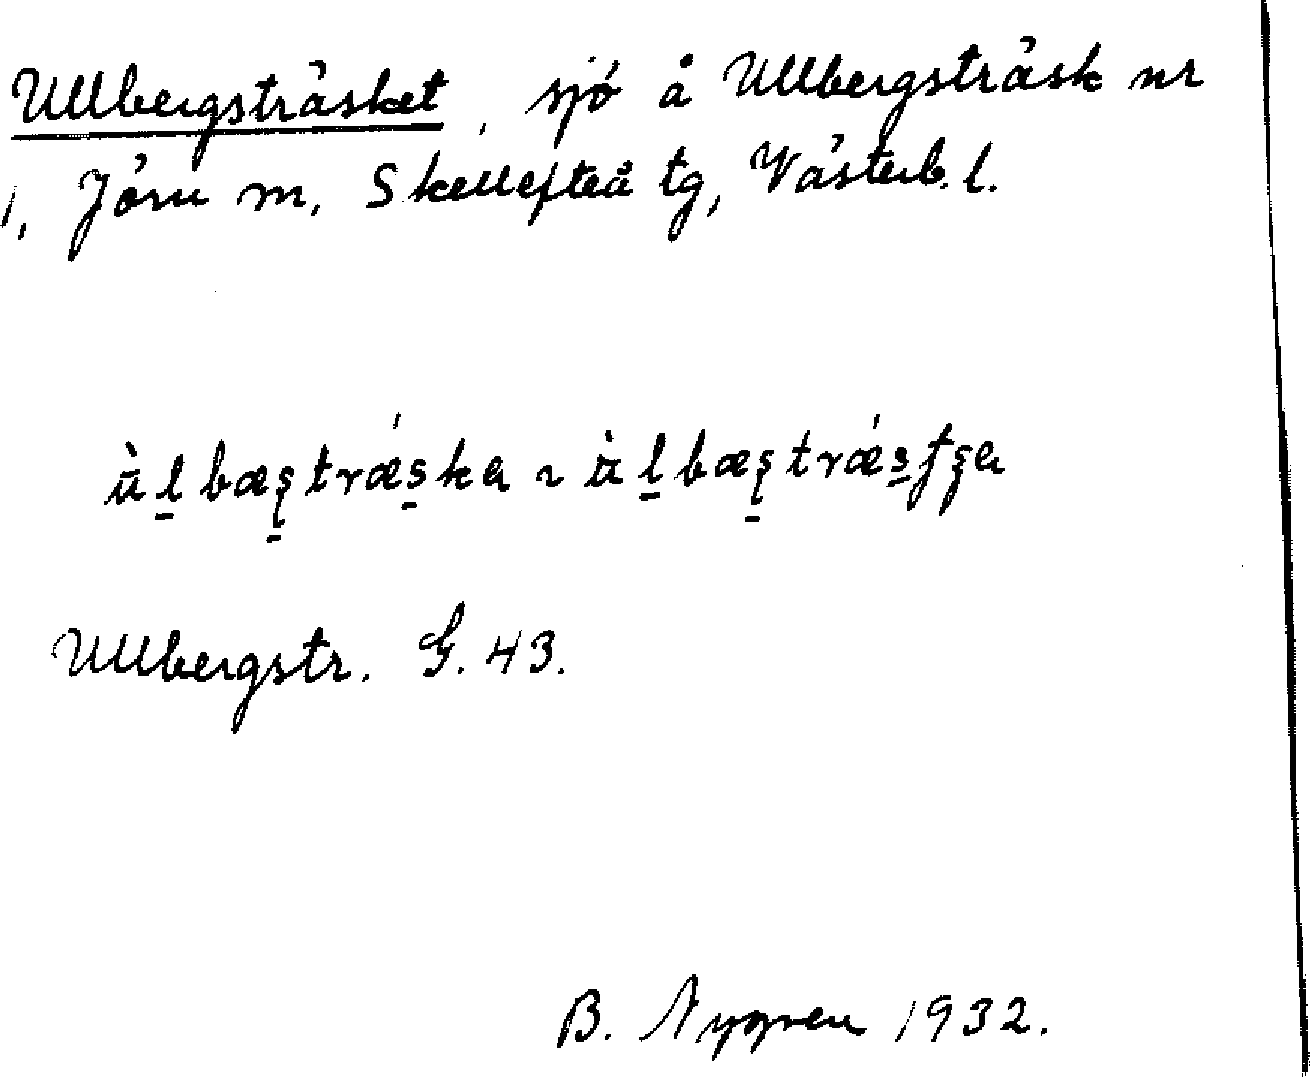 Ullbergsträsket, sjö å Ullbergsträsk nr
1, Jörn sn, Skellefteå tg, Västerb. l.
ùḻbæștrǽs̱ka ~ ùḻbæștrǽs̱tșa
Ullbergstr. G. 43.
B. Nygren 1932.